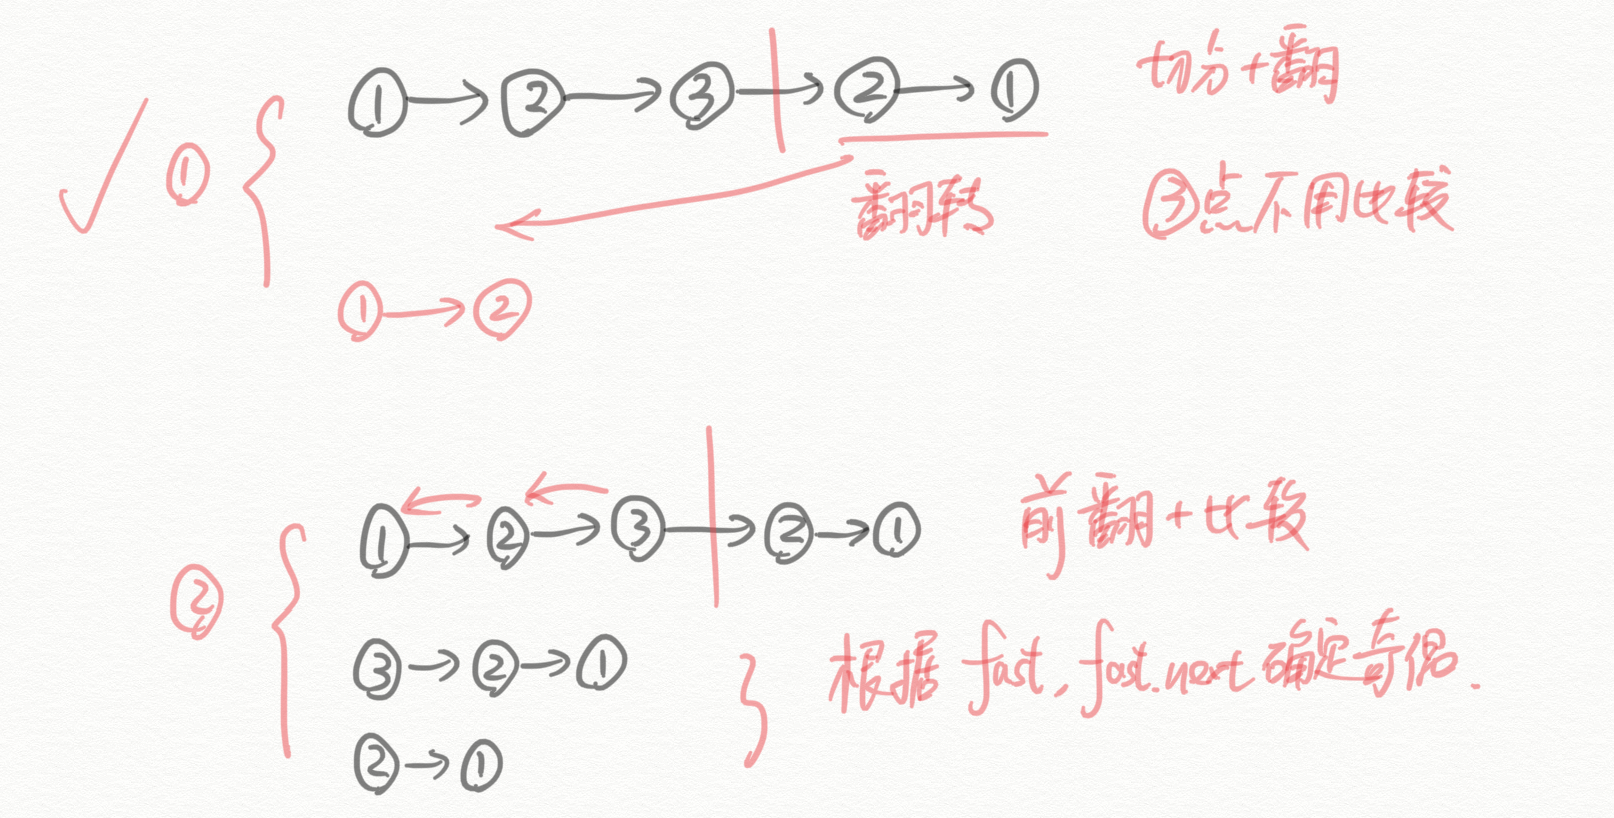 ① → ② → ③ → ② → ① 切分+翻
①
翻转 ③点不用比较
① → ②
① → ② → ③ → ② → ① 前翻+比较
②
③ → ② → ① 根据 fast, fast.next 确定奇偶.
② → ①